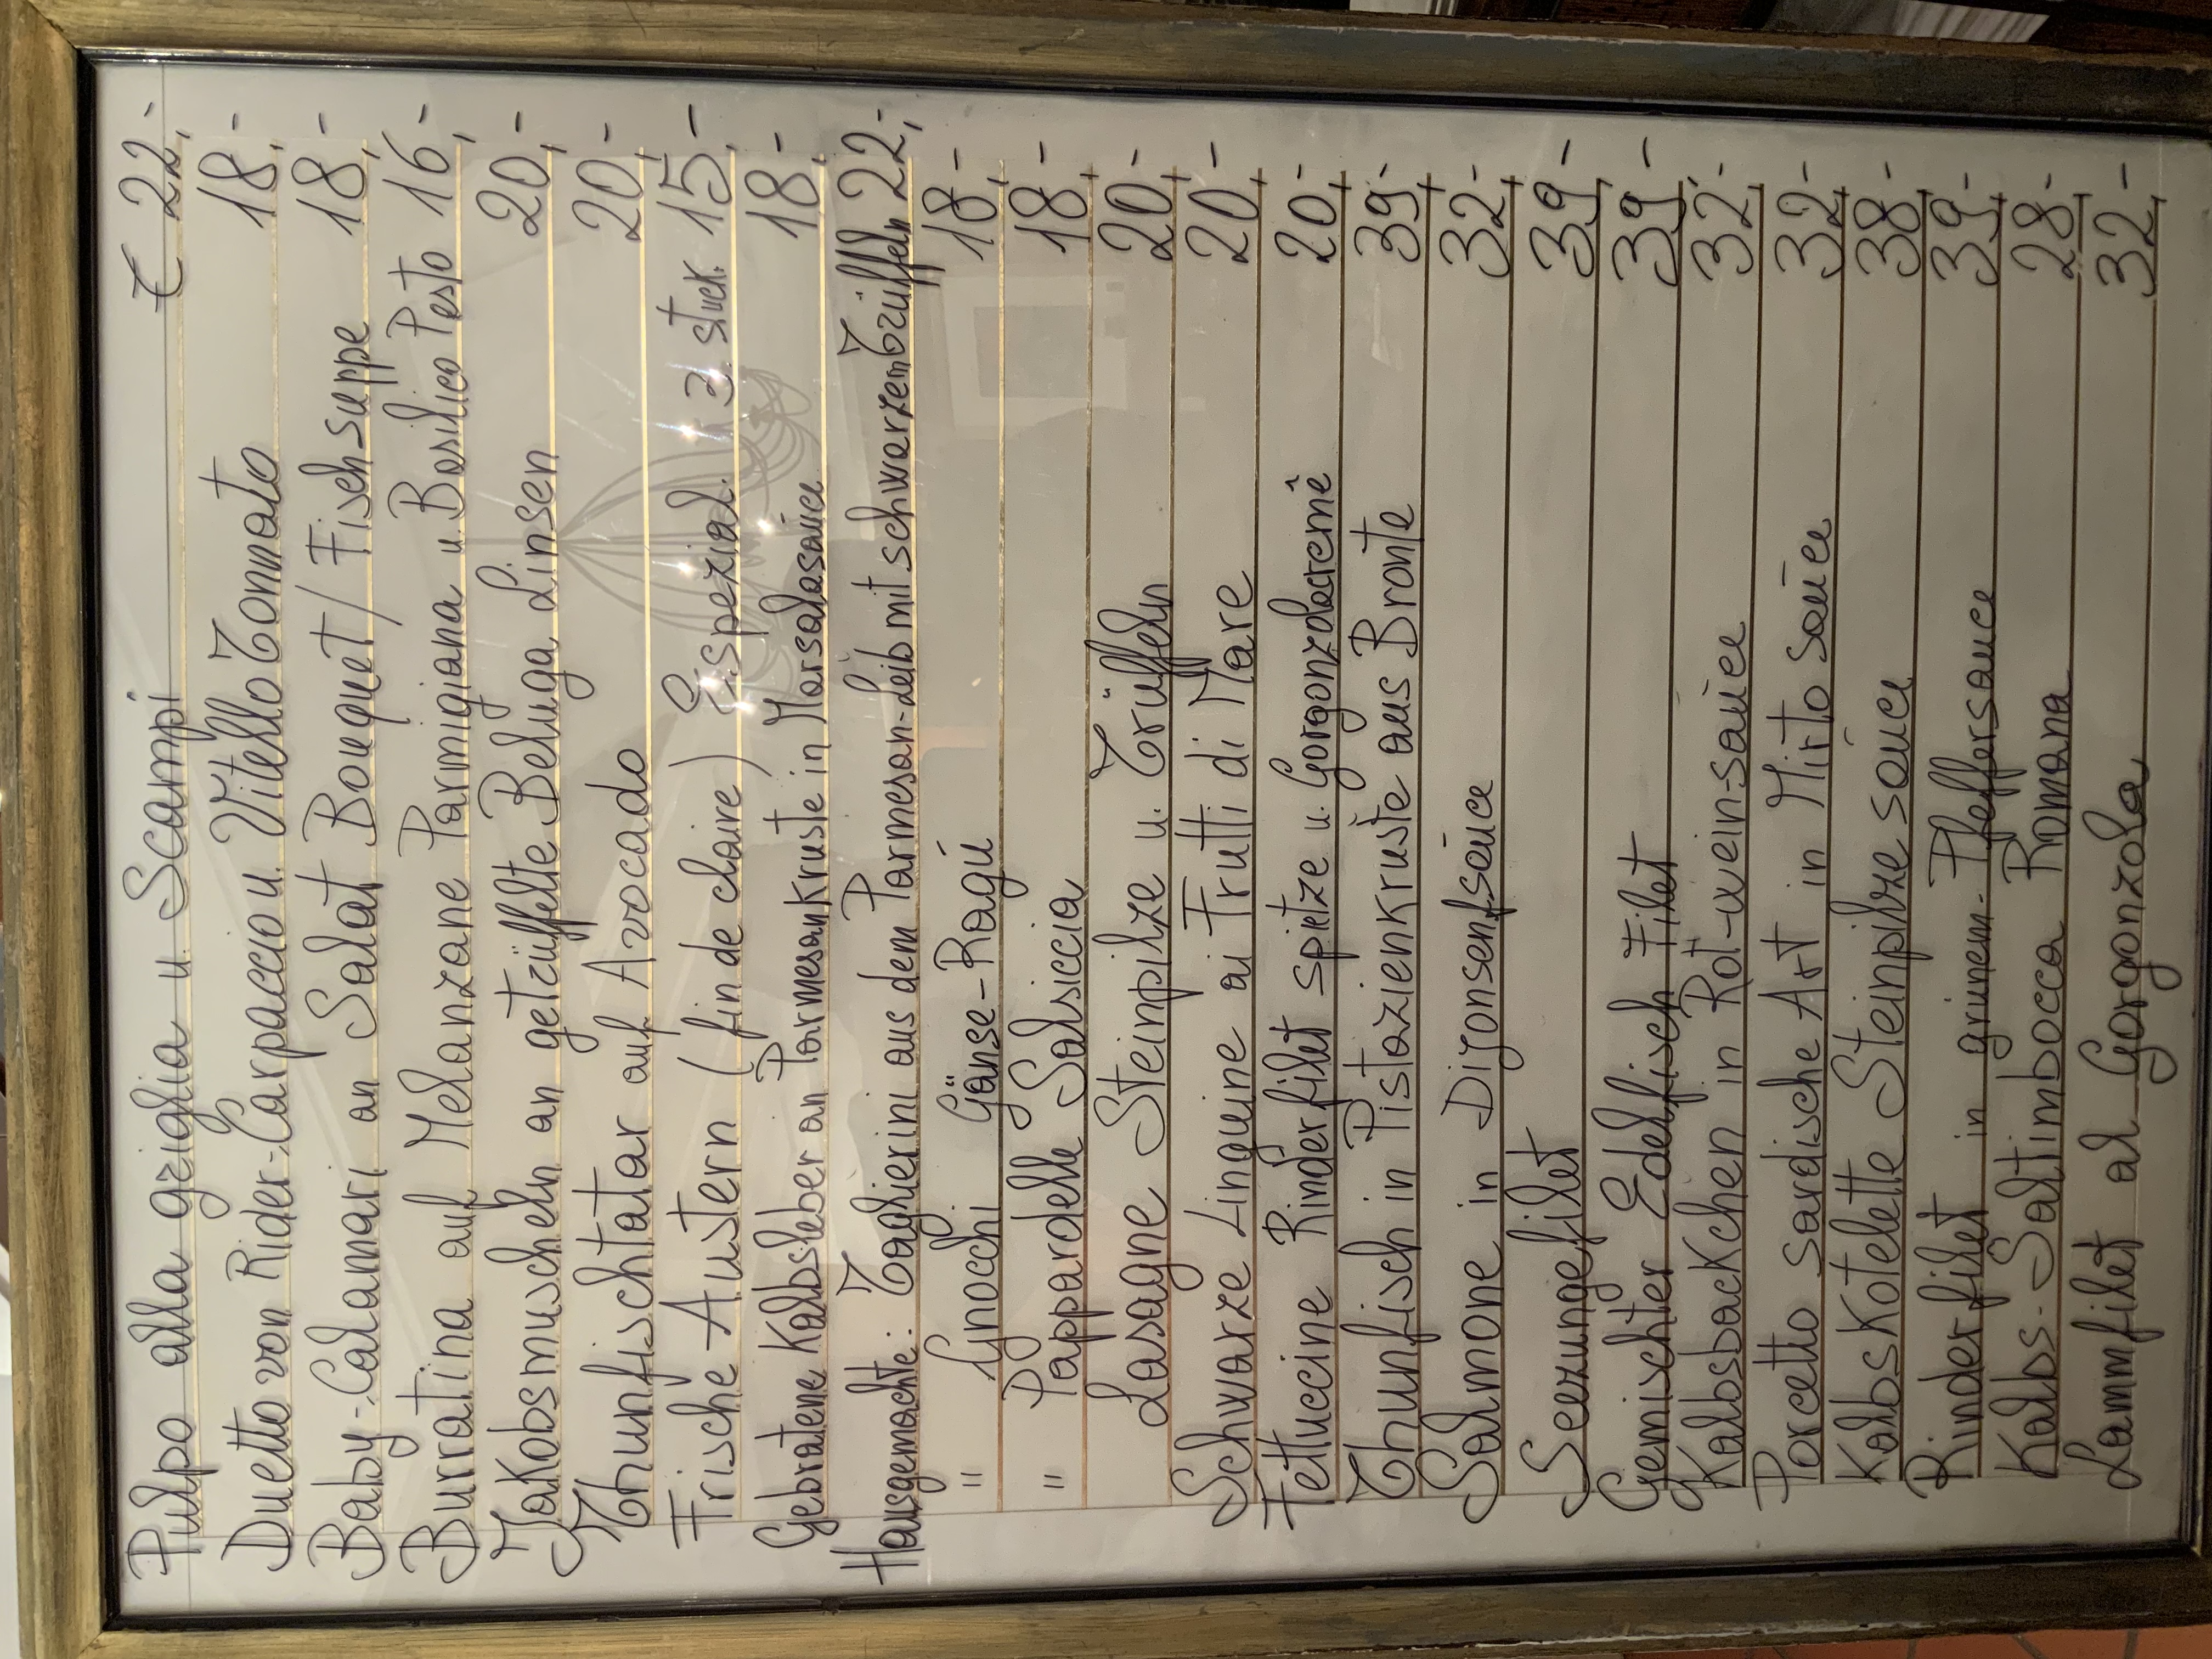 Pulpo alla griglia u. Scampi € 22,-
Duetto von Rider-Carpaccio u. Vitello Tonnato 18,-
Baby-Calamari an Salat Bouquet / Fisch-suppe 18,-
Burratina auf Melanzane Parmigiana u. Basilico Pesto 16,-
Jakobsmuscheln an getrüffelte Beluga Linsen 20,-
Thunfischtatar auf Avocado 20,-
Frische Austern (fin de claire) Spezial. 3. stuck. 15,-
Gebratene Kalbsleber an Parmesankruste in Marsalasauce 18,-
Hausgemachte: Taglierini aus dem Parmesan-Leib mit schwarzem Trüffeln 22,-
" Gnocchi Gänse-Ragú 18,-
" Papardelle Salsiccia 18,-
Lasagne Steinpilze u. Trüffeln 20,-
Schwarze Linguine ai Frutti di Mare 20,-
Fettuccine Rinderfilet spitze u. Gorgonzolacremé 20,-
Thunfisch in Pistazienkruste aus Bronte 39,-
Salmone in Dijonsenfsauce 32,-
Seezungefilet 39,-
Gemischter Edelfisch Filet 39,-
Kalbsbackchen in Rot-wein-sauce 32,-
Porcetto sardische Art in Mirto sauce 32,-
Kalbskotelette Steinpilze sauce 38,-
Rinderfilet in grünem-Pfeffersauce 39,-
Kalbs-Saltimbocca Romana 28,-
Lammfilet al Gorgonzola 32,-